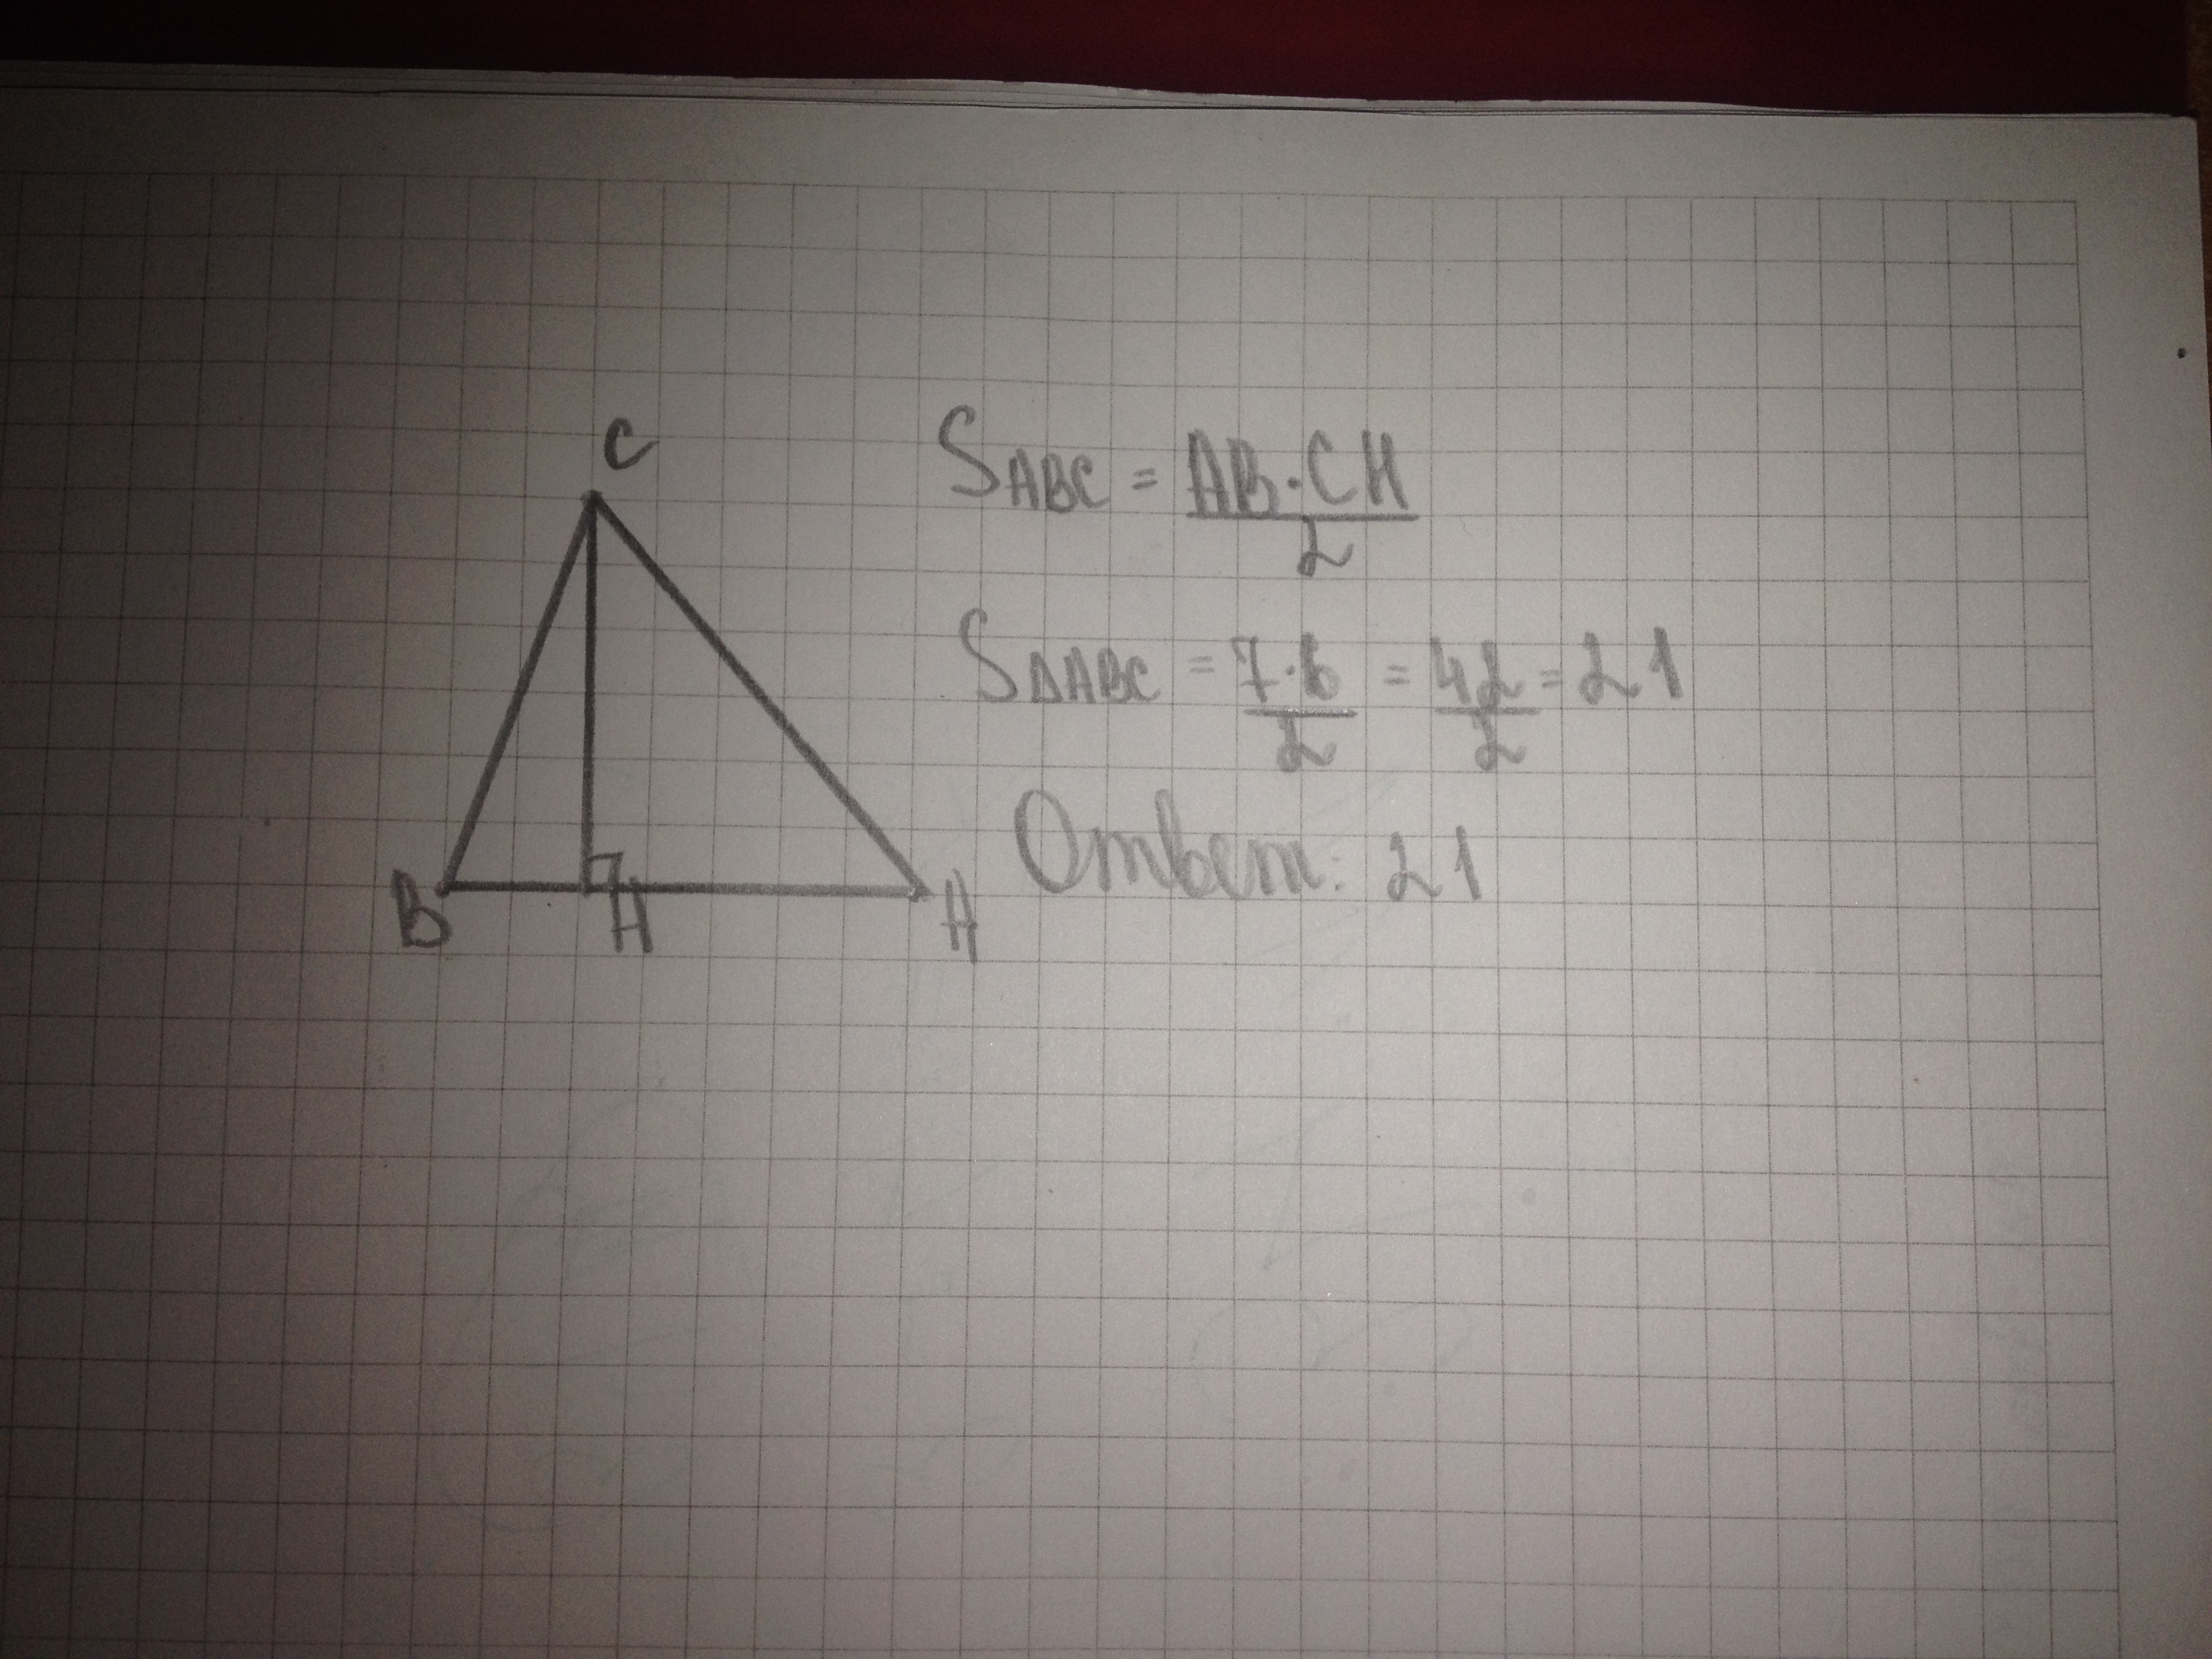 C
B H A
S ABC = AB·CH / 2
S ΔABC = 7·6 / 2 = 42 / 2 = 21
Ответ: 21